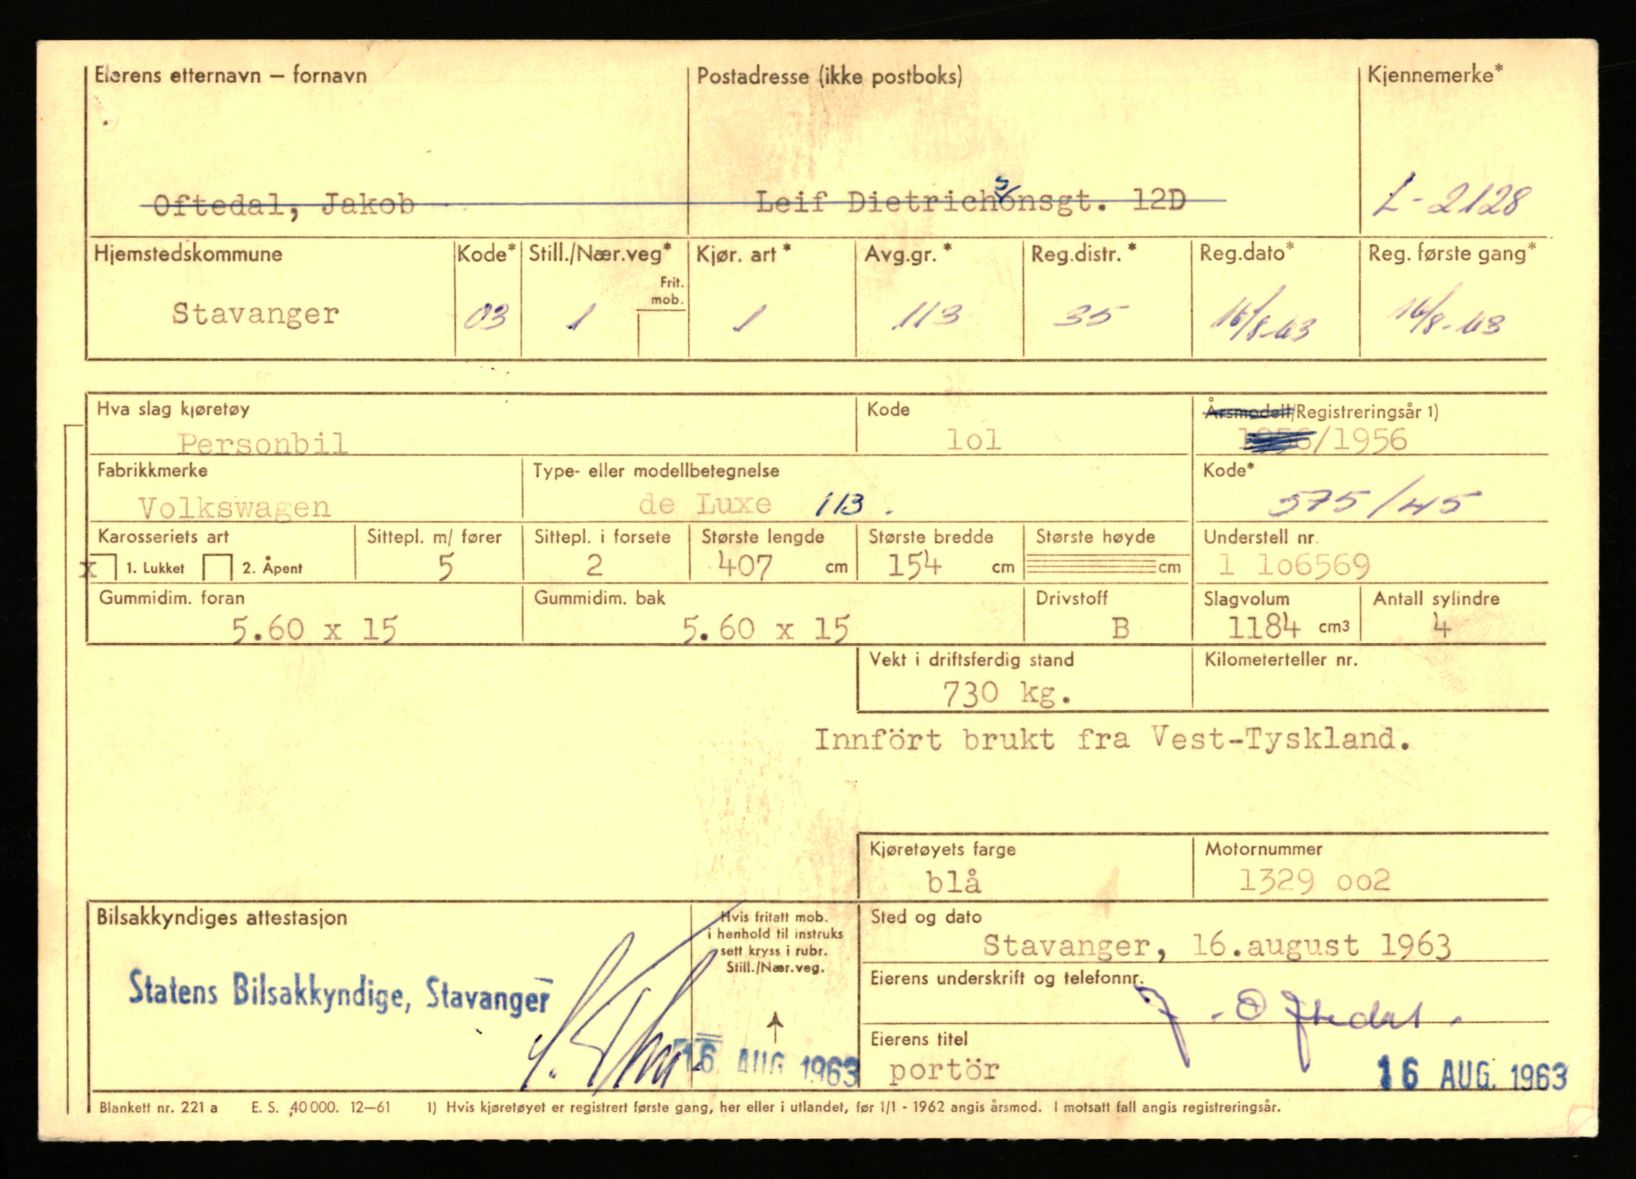 Eierens etternavn – fornavn
Postadresse (ikke postboks)
Kjennemerke*
Oftedal, Jakob
Leif Dietrichsonsgt. 12D
L-2128
Hjemstedskommune
Kode*
Still./Nær.veg*
Frit. mob.
Kjør. art*
Avg.gr.*
Reg.distr.*
Reg.dato*
Reg. første gang*
Stavanger
03
1
1
113
35
16/8-63
16/8-63
Hva slag kjøretøy
Kode
Årsmodell/Registreringsår 1)
Personbil
lol
1956/1956
Fabrikkmerke
Type- eller modellbetegnelse
Kode*
Volkswagen
de Luxe 113.
575/45
Karosseriets art
Sittepl. m/ fører
Sittepl. i forsete
Største lengde
Største bredde
Største høyde
Understell nr.
x 1. Lukket 2. Åpent
5
2
407 cm
154 cm
cm
1 1o6569
Gummidim. foran
Gummidim. bak
Drivstoff
Slagvolum
Antall sylindre
5.60 x 15
5.60 x 15
B
1184 cm3
4
Vekt i driftsferdig stand
Kilometerteller nr.
730 kg.
Innfört brukt fra Vest-Tyskland.
Kjøretøyets farge
Motornummer
blå
1329 oo2
Bilsakkyndiges attestasjon
Hvis fritatt mob.
i henhold til instruks
sett kryss i rubr.
Still./Nær.veg.
Sted og dato
Stavanger, 16.august 1963
Statens Bilsakkyndige, Stavanger
Eierens underskrift og telefonnr.
J. Oftedal.
16 AUG 1963
Eierens titel
portör
16 AUG. 1963
Blankett nr. 221 a E. S. 40 000. 12–61 1) Hvis kjøretøyet er registrert første gang, her eller i utlandet, før 1/1 - 1962 angis årsmod. I motsatt fall angis registreringsår.